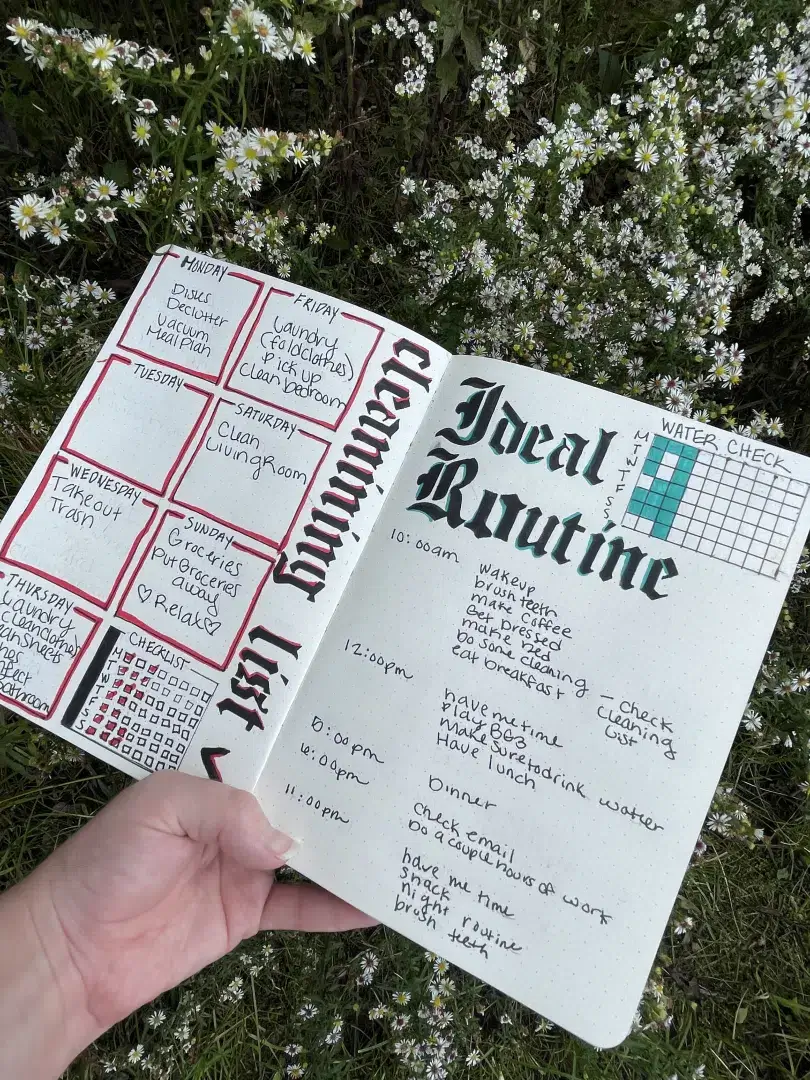 MONDAY
Dishes
Declutter
Vacuum
Meal Plan
TUESDAY
WEDNESDAY
Takeout
Trash
THURSDAY
Laundry
bathroom
FRIDAY
Laundry
(fold clothes)
Pick up
Clean bedroom
SATURDAY
Clean
Living Room
SUNDAY
Groceries
Put Groceries
away
♡ Relax ♡
CHECKLIST
M
T
W
T
F
S
S
list
Ideal
Routine
WATER CHECK
M
T
W
T
F
S
S
10:00am
wakeup
brush teeth
make coffee
Get Dressed
make bed
Do some cleaning - check
cleaning
list
eat breakfast
12:00pm
have me time
Play BG3
Make sure to drink watter
Have lunch
5:00pm
Dinner
6:00pm
check email
Do a couple hours of work
11:00pm
have me time
snack
night routine
brush teeth